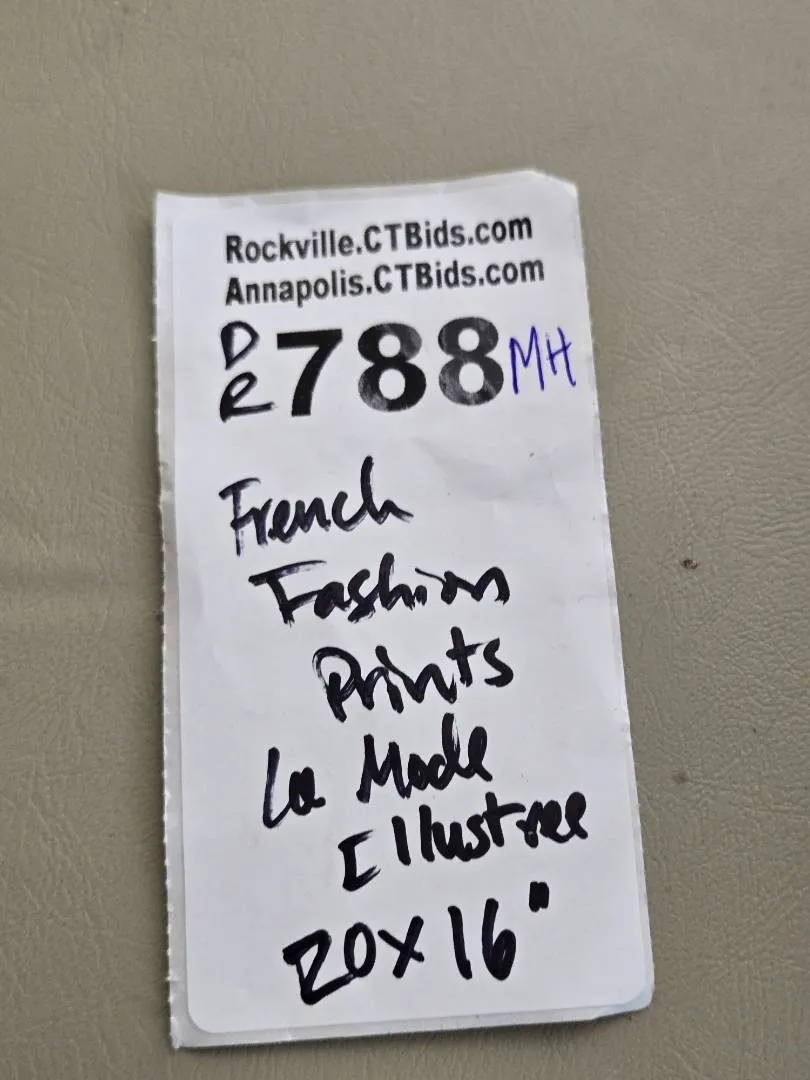 Rockville.CTBids.com
Annapolis.CTBids.com
DR 788 MH
French
Fashion
Prints
La Mode
Illustree
20x16"